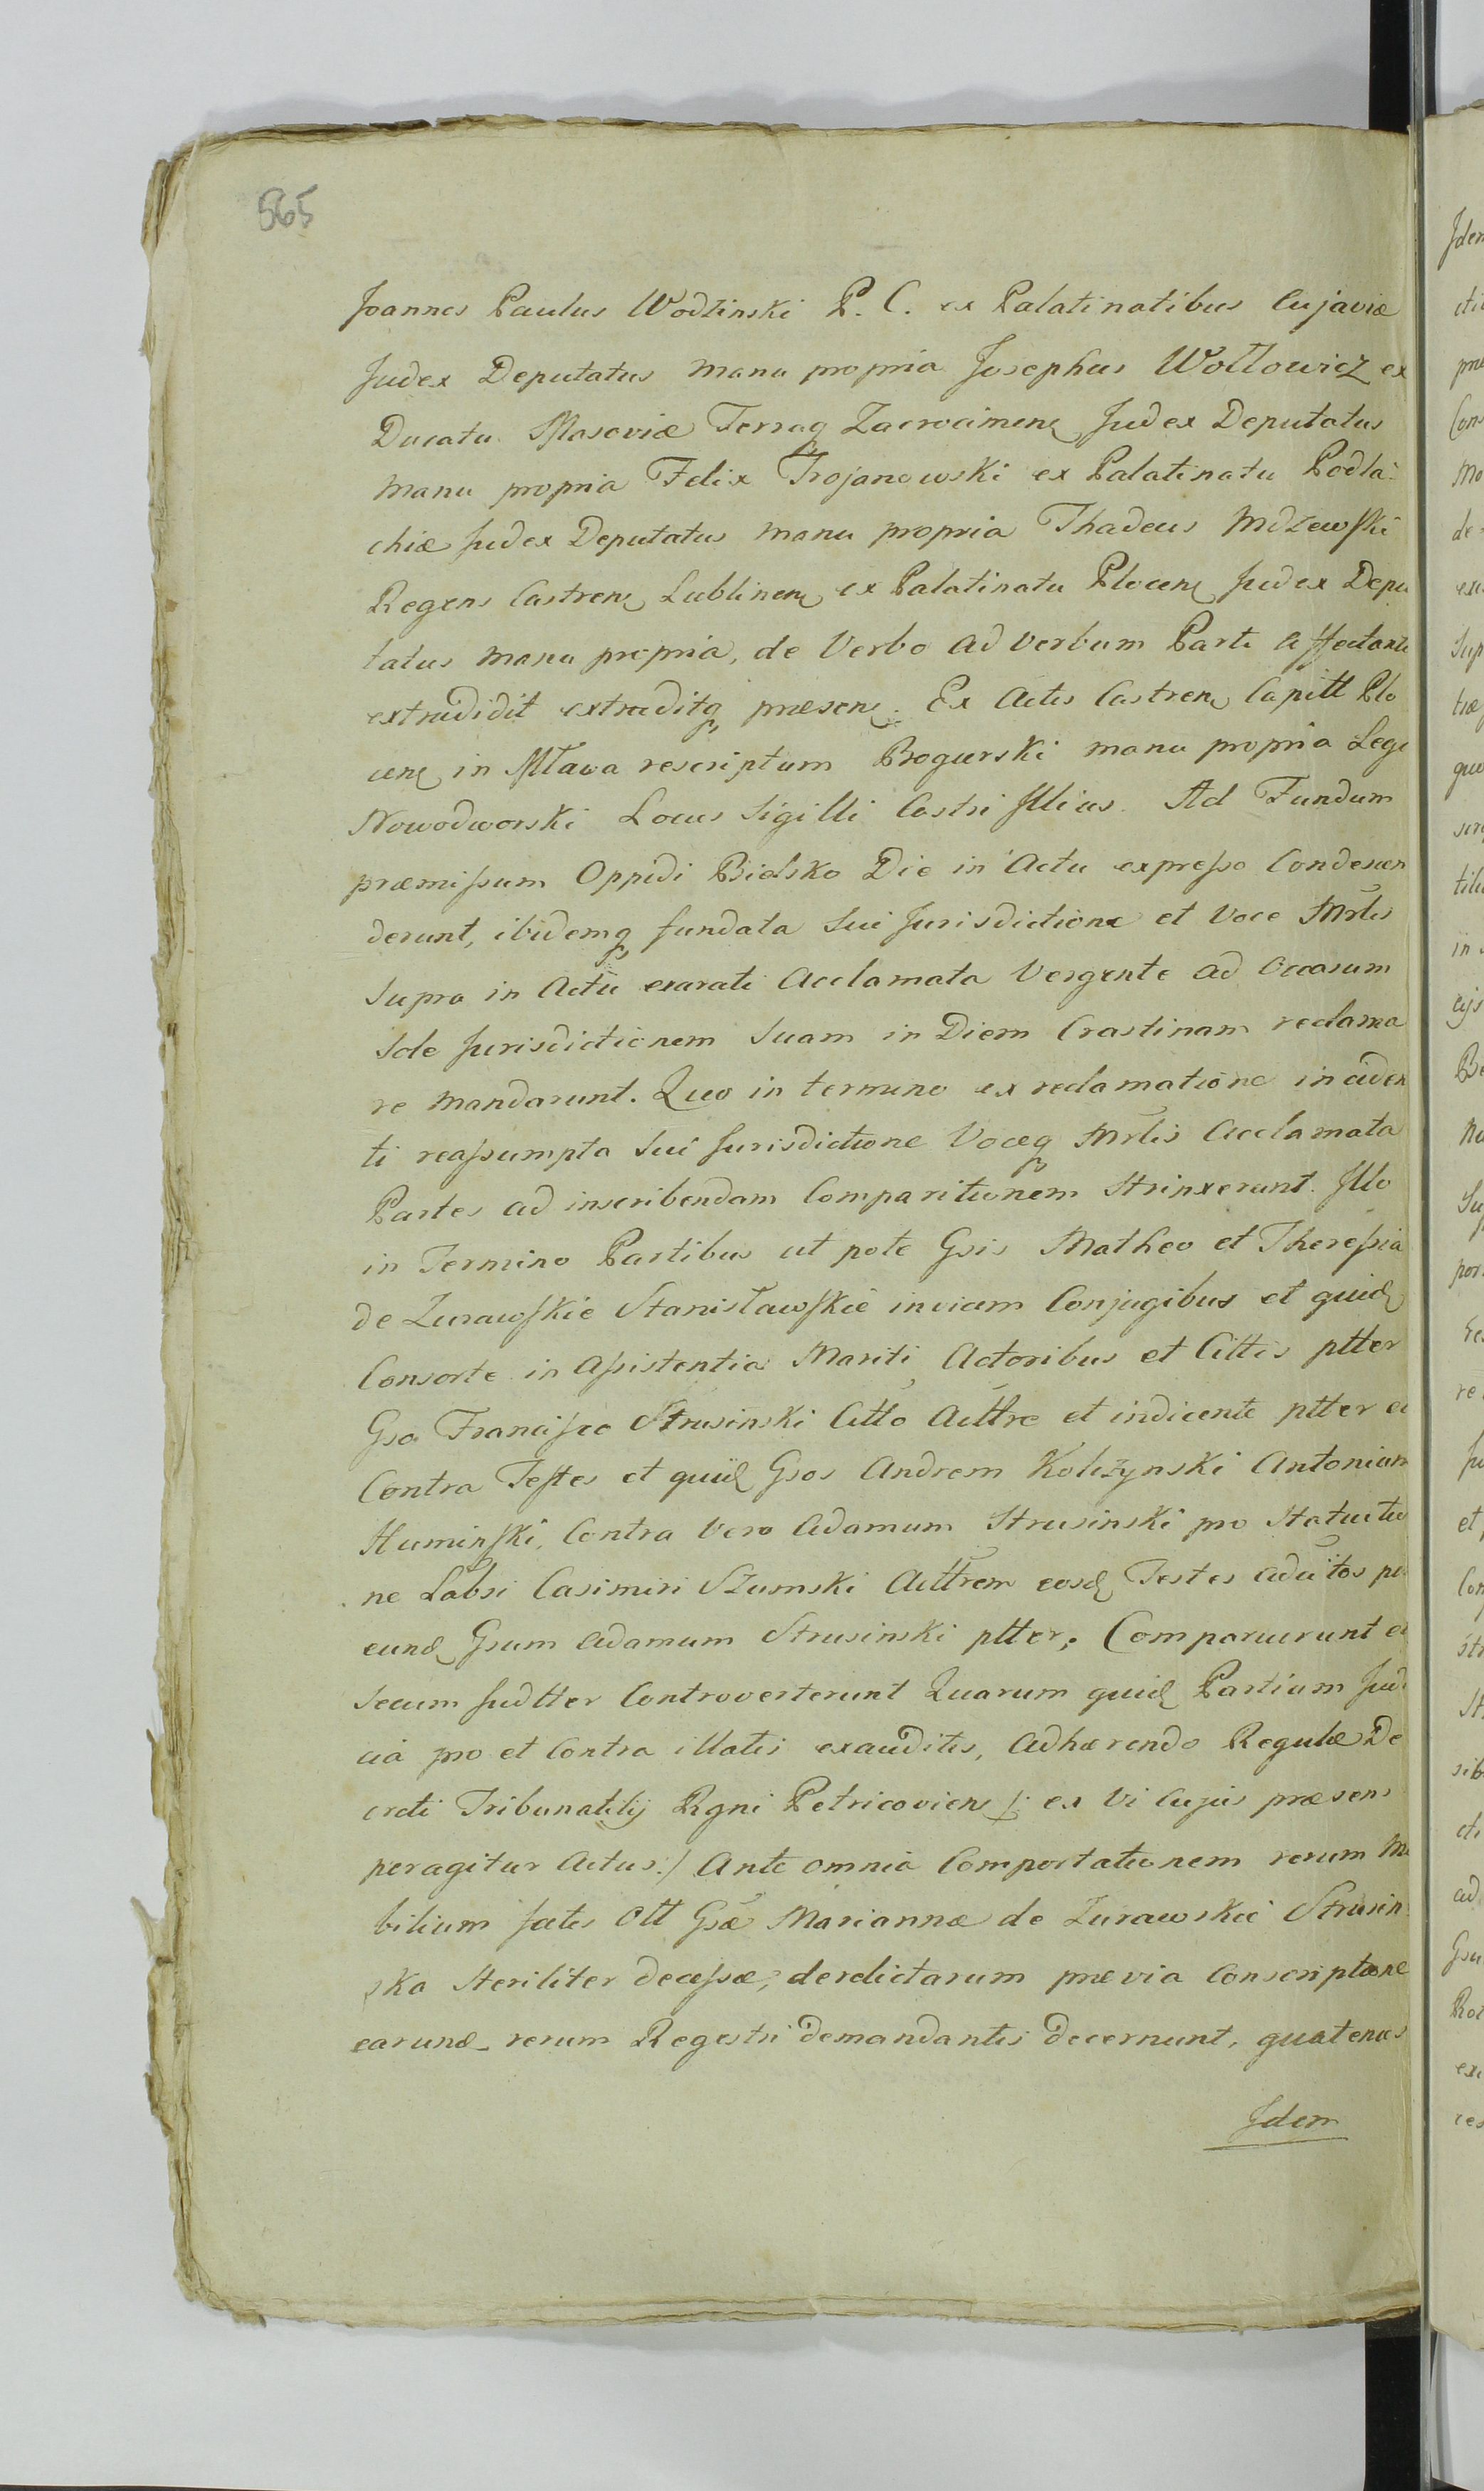 565
Joannes Paulus Wodzinski P. C. ex Palatinatibus Cujaviæ
Judex Deputatus manu propria Josephus Wottowicz ex
Ducatu Masoviæ Terraq Zacrocimens Judex Deputatus
manu propria Felix Trojanowski ex Palatinatu Podla
chiæ Judex Deputatus manu propria Thadeus Mdzewski
Regens Castrens Lublinens ex Palatinatu Plocens Judex Depu
tatus manu propria, de Verbo ad verbum Parti affectanti
extradidit extraditq præsens. Ex Actis Castrens Capitt Plo
cens in Mława rescriptum Bogurski manu propria Legi
Nowodworski Locus Sigilli Castri Illius. Ad Fundum
præmissum Oppidi Bielsko Die in Actu expresso Condescen
derunt, ibidemq fundata Sui Jurisdictione et Voce Mrlis
Supra in Actu exarati Acclamata Vergente ad Occasum
Sole Jurisdictionem Suam in Diem Crastinam reclama
re mandarunt. Quo in termino ex reclamatione inciden
ti reassumpta Sui Jurisdictione Voceq Mrlis Acclamata
Partes ad inscribendam Comparitionem Strinxerunt. Illo
in Termino Partibus ut pote Gsis Matheo et Theressia
de Zurawskie Stanisławskie invicem Conjugibus et quid
Consorte in Assistentia Mariti Actoribus et Cittis ptter
Gso Francisco Strusinski Citto Acttre et indicente ptter et
Contra Testes et quid Gsos Andrem Koliżynski Antonium
Huminski, Contra Vero Adamum Strusinski pro Statuitio
ne Labsi Casimiri Szumski Acttrem eosd Testes aducitos per
eund Gsum Adamum Strusinski ptter. Comparuerunt et
secum Judtter Controverterunt Quarum quid Partium Judi
cia pro et Contra illatis exauditis, Adhærendo Regulæ De
creti Tribunatilij Rgni Petricoviens /: ex Vi Cujus præsens
peragitur Actus :/ Ante omnia Comportationem rerum Mo
bilium post Ott Gsæ Mariannæ de Zurawskie Strusin
ska Steriliter decessæ, derelictarum prævia Conscriptione
earund rerum Regestri demandantis decernunt, quatenus
Idem